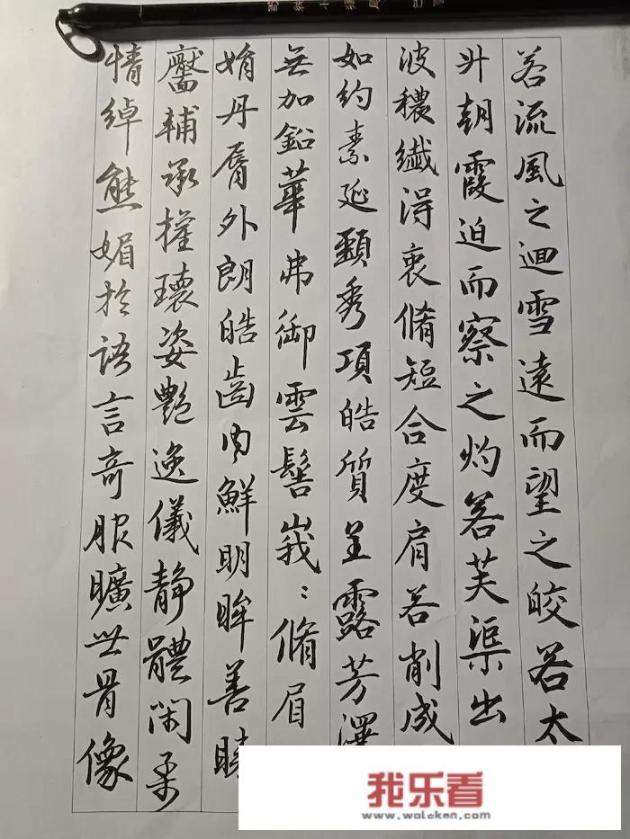 若流風之迴雪遠而望之皎若太
升朝霞迫而察之灼若芙渠出
波穠纖得衷脩短合度肩若削成
如約素延頸秀項皓質呈露芳澤
無加鉛華弗御雲髻峩：脩眉
娟丹脣外朗皓齒内鮮明眸善睞
靨輔承權瓌姿艷逸儀静體閑柔
情綽態媚於語言奇服曠世骨像
我乐看
www.woleken.com